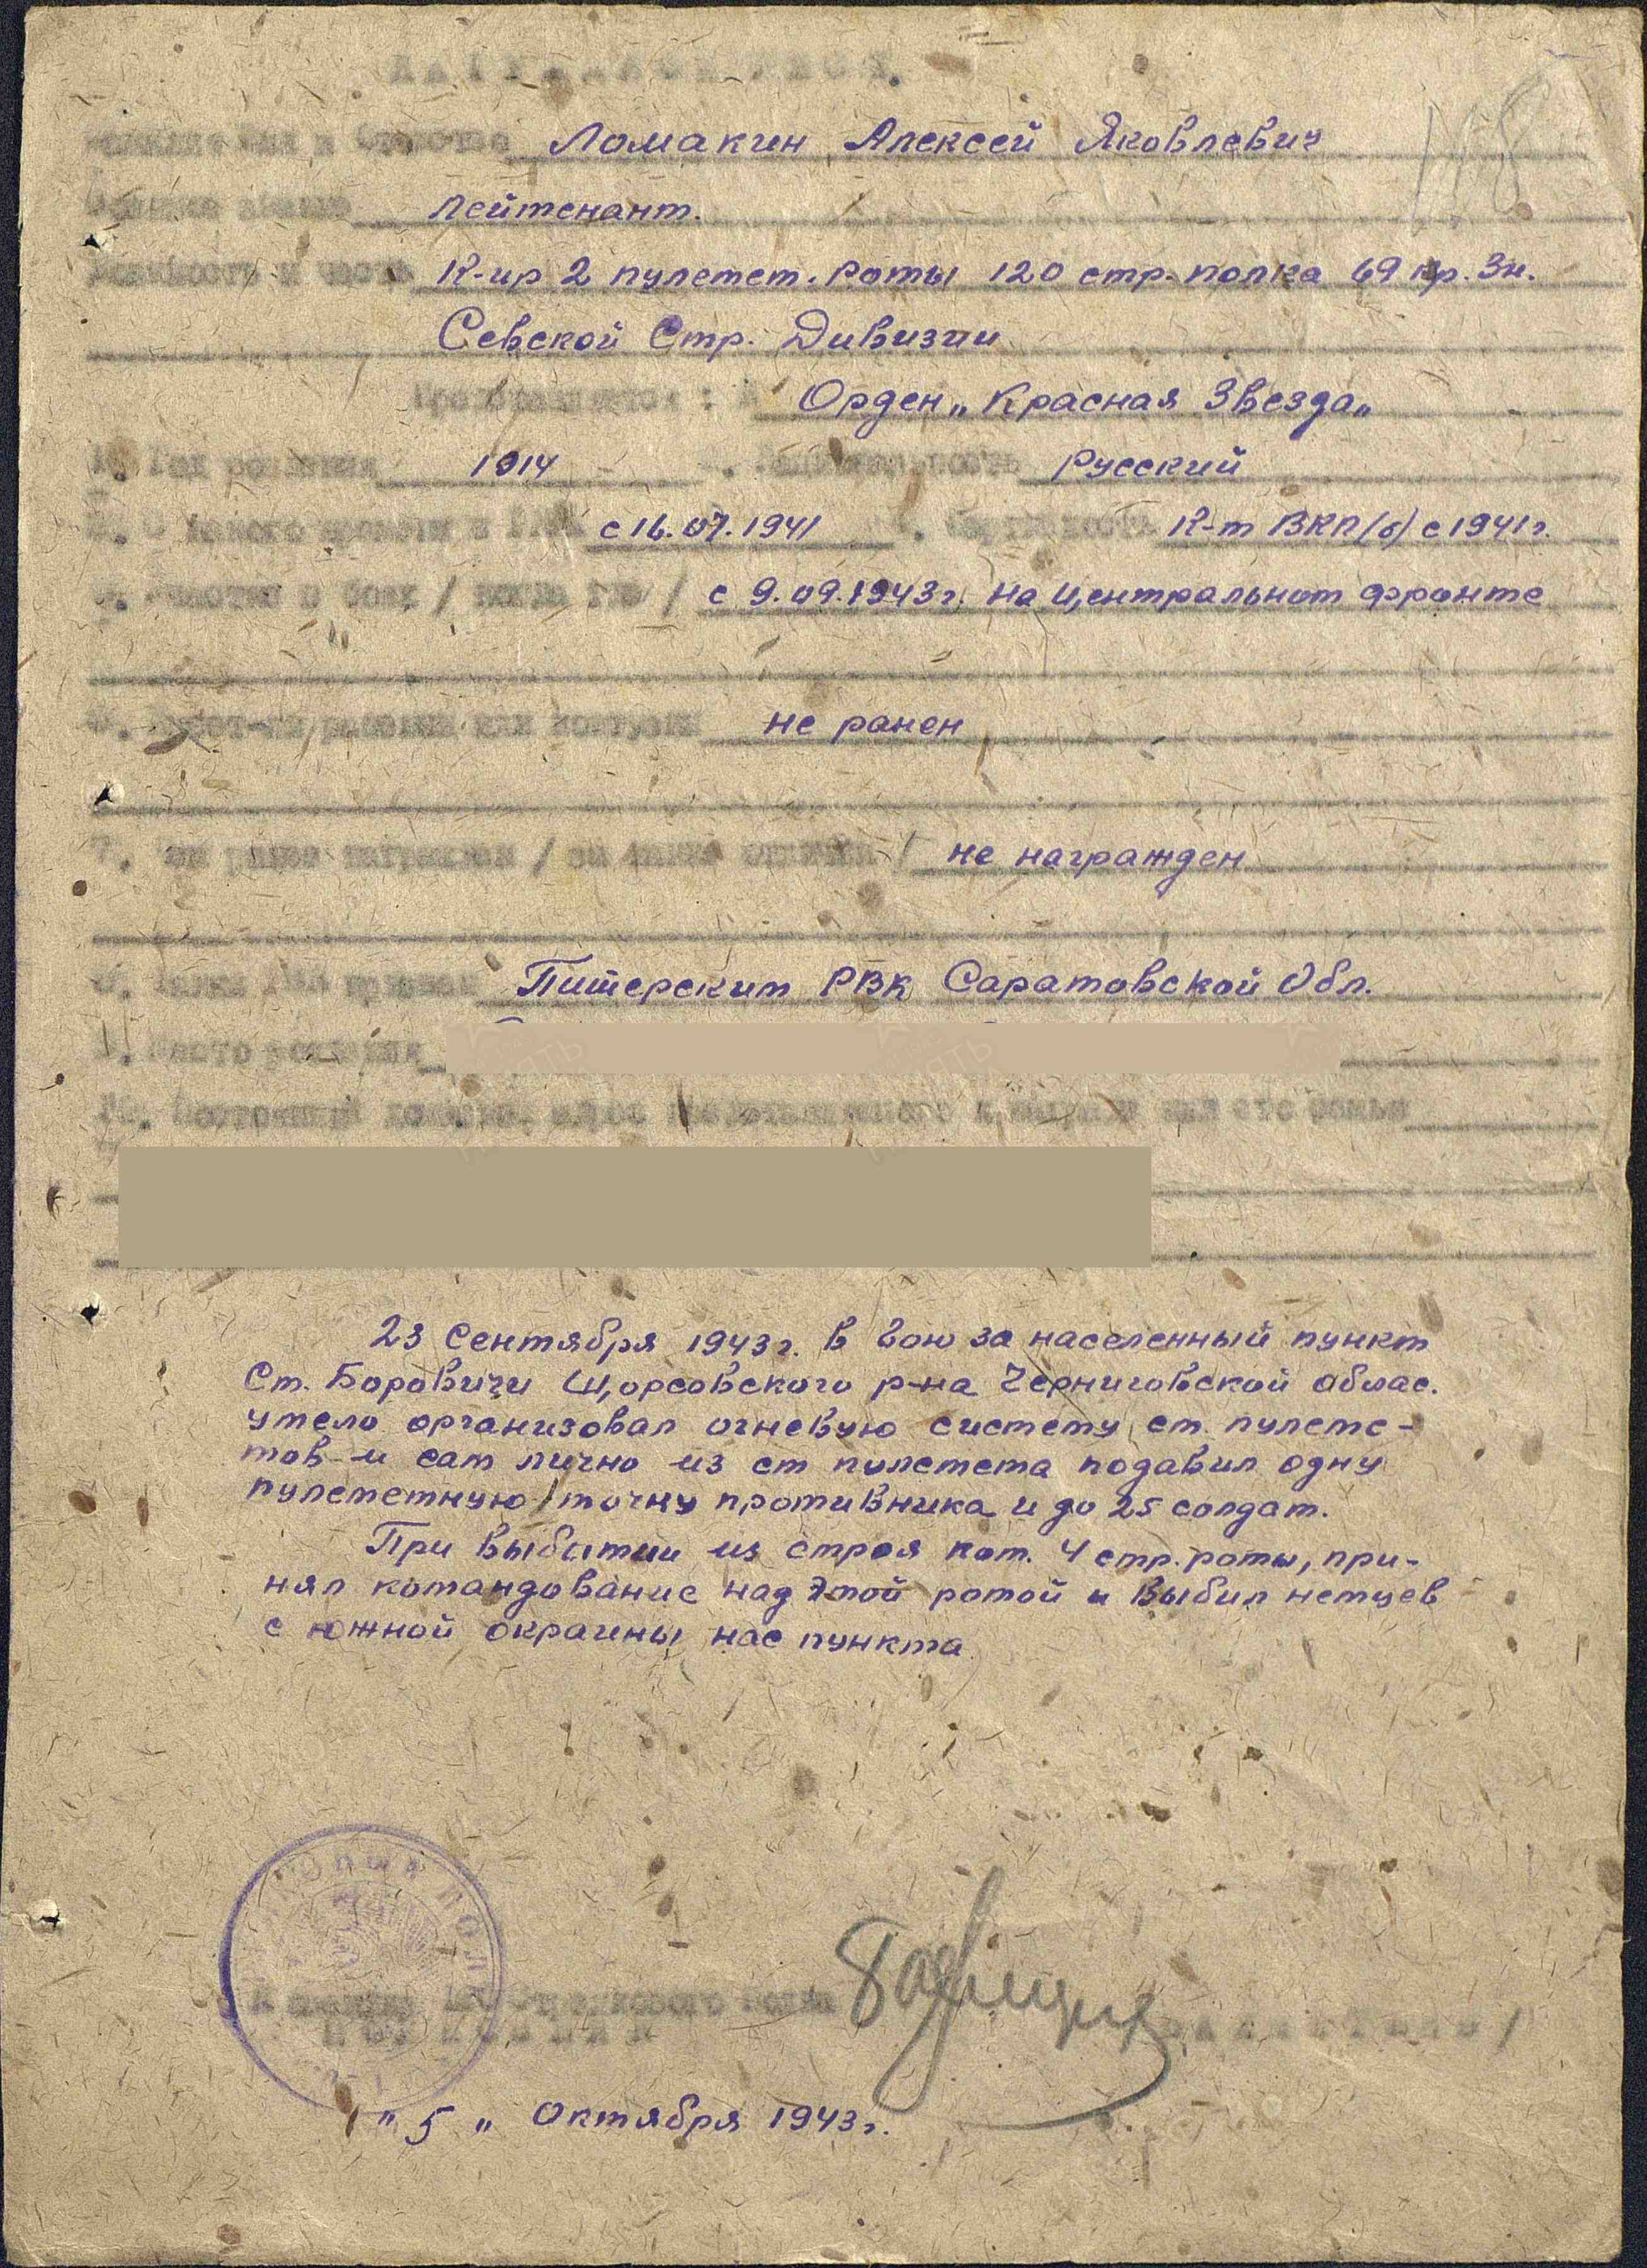 НАГРАДНОЙ ЛИСТ.
Фамилия Имя и Отчество Ломакин Алексей Яковлевич
№8
Военное звание лейтенант.
Должность и часть К-ир 2 пулемет. роты 120 стр. полка 69 кр. Зн.
Севской Стр. Дивизии
Представляется: К Орден „Красная Звезда„
1. Год рождения 1914 2. Национальность русский
3. С какого времени в с 16.07.1941 4. Партийность К-т ВКП/б/ с 1941г.
5. Участие в боях / когда где / с 9.09.1943г. на Центральном фронте
6. ранения или контузии не ранен
7. Чем ранее награжден / за какие отличия / не награжден
8. Каким РВК призван Питерским РВК Саратовской Обл.
9. Место рождения
10. Постоянный домашн. адрес представляемого к награде или его семьи
23 Сентября 1943г. в бою за населенный пункт
Ст. Боровичи Щорсовского р-на Черниговской облас.
умело организовал огневую систему ст. пулеме-
тов и сам лично из ст пулемета подавил одну
пулеметную точку противника и до 25 солдат.
При выбытии из строя ком. 4 стр. роты, при-
нял командование над этой ротой и выбил немцев
с южной окраины нас пункта
Командир 120 Стрелкового Полка
ПОДПОЛКОВНИК
„ 5 „ Октября 1943г.